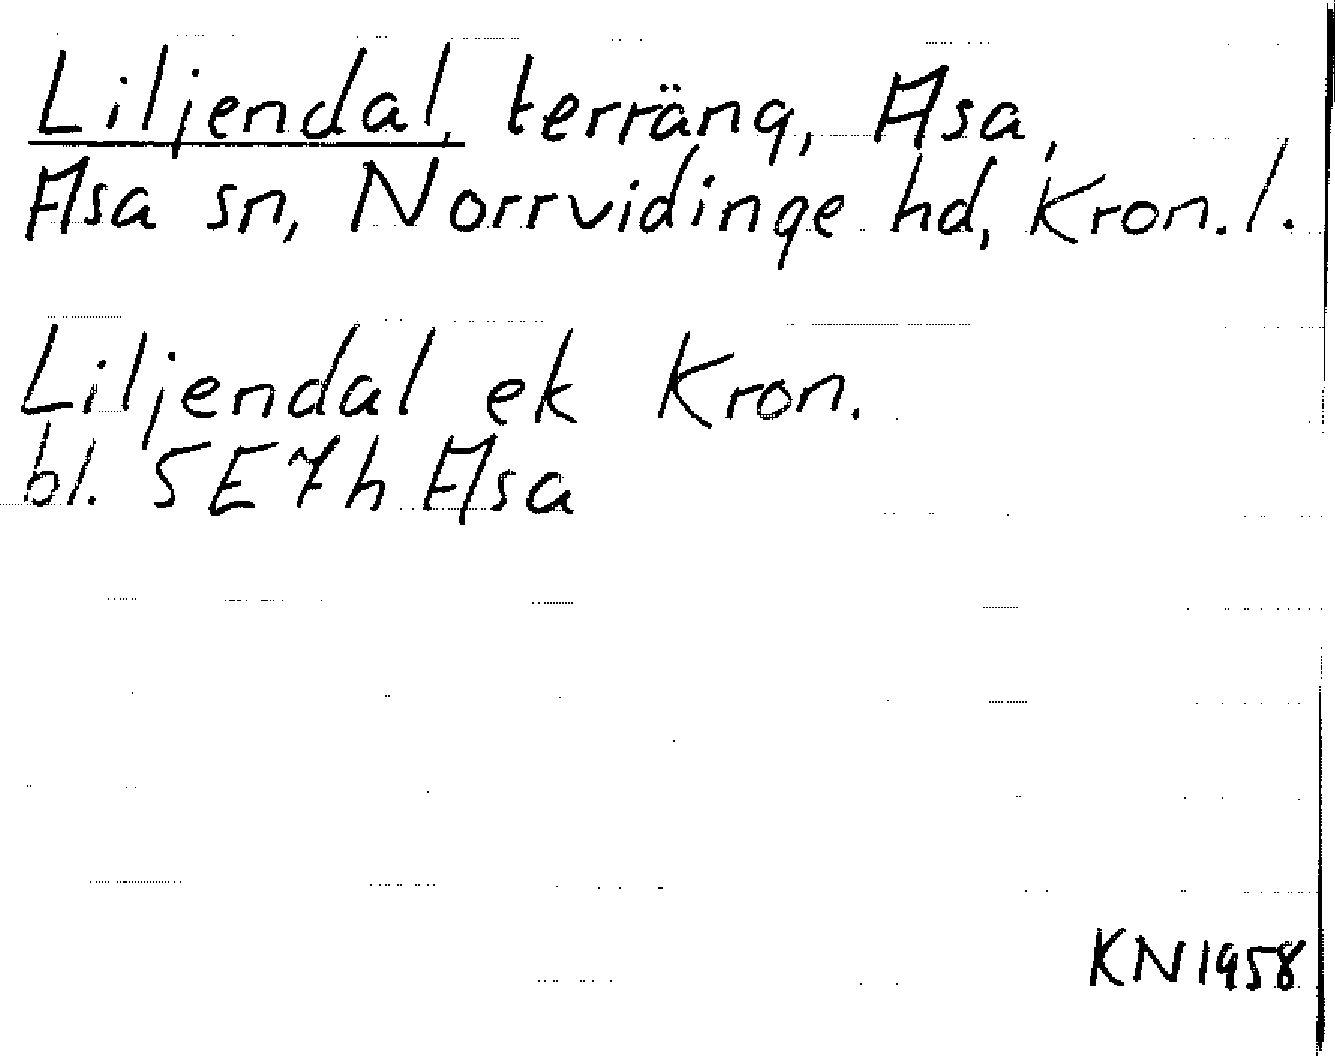 Liljendal, terräng, Asa,
Asa sn, Norrvidinge hd, Kron. l.
Liljendal ek Kron.
bl. 5E7h Asa
KN 1958